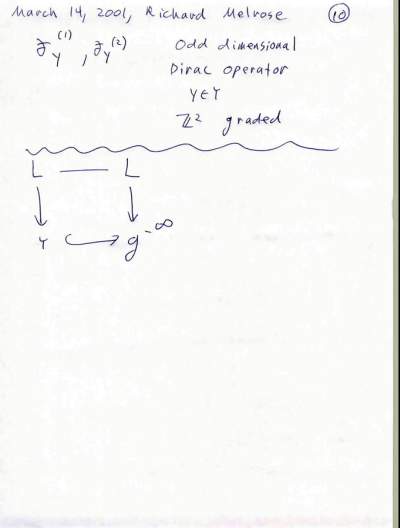 March 14, 2001, Richard Melrose 10
𝔷_Y^(1), 𝔷_Y^(2) Odd dimensional
Dirac operator
Y∈Y
ℤ² graded
L — L
↓ ↓
Y ↪ g^-∞